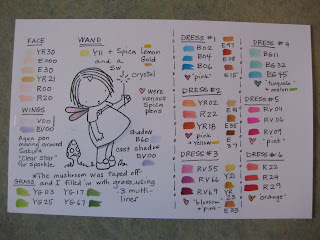 FACE
YR30
E000
E30
YR21
R00
R20
WAND
Y11 + Spica Lemon
and a Gold
SW
crystal
were
various
Spica
pens
WINGS
V000
BV00
Aqua pen
moving around
Sakura
"Clear Star"
for sparkle
shadow
B60
cast shadow
BV00
The mushroom was taped off
and I filled in with grass using
.3 multi-
liner
GRASS
YG03 YG17
YG25 YG67
DRESS #1
B02
B04
B06
"pink"
E97
E15
DRESS #2
YR02
YR04
YR18
"pink
+
Yellow"
E35
E37
DRESS #3
RV55
RV66
RV69
"blossom"
+ pink"
YR23
E25
DRESS #4
BG11
BG32
BG45
"turquoise"
+ melon
DRESS #5
RV04
RV06
RV09
"pink"
DRESS #6
R22
R24
R29
"orange"